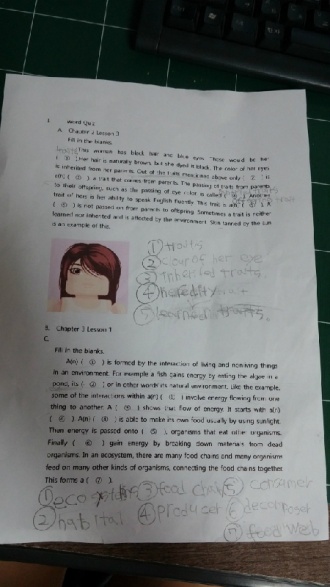 Word Quiz
A. Chapter 3 Lesson 3
Fill in the blanks.
This woman has black hair and blue eyes. These would be her
( ① ). Her hair is naturally brown, but she dyed it black. The color of her eyes
is inherited from her parents. Out of the traits mentioned above only ( ② ) is
a(n) ( ③ ), a trait that comes from parents. The passing of traits from parents
to their offspring, such as the passing of eye color is called ( ④ ). Another
trait of hers is her ability to speak English fluently. This trait is a(n) ( ⑤ ). A
( ⑤ ) is not passed on from parents to offspring. Sometimes a trait is neither
learned nor inherited and is affected by the environment. Skin tanned by the sun
is an example of this.
① traits
② color of her eye
③ inherited traits
④ heredity
⑤ learned traits.
B. Chapter 3 Lesson 1
C.
Fill in the blanks.
A(n) ( ① ) is formed by the interaction of living and nonliving things
in an environment. For example a fish gains energy by eating the algae in a
pond, its ( ② ) or in other words its natural environment. Like the example,
some of the interactions within a(n) ( ① ) involve energy flowing from one
thing to another. A ( ③ ) shows that flow of energy. It starts with a(n)
( ④ ). A(n) ( ④ ) is able to make its own food usually by using sunlight.
Then energy is passed onto ( ⑤ ), organisms that eat other organisms.
Finally ( ⑥ ) gain energy by breaking down materials from dead
organisms. In an ecosystem, there are many food chains and many organisms
feed on many other kinds of organisms, connecting the food chains together.
This forms a ( ⑦ ).
① ③ food chain ⑤ consumer
② habitat ④ producer ⑥ decomposer
⑦ food web